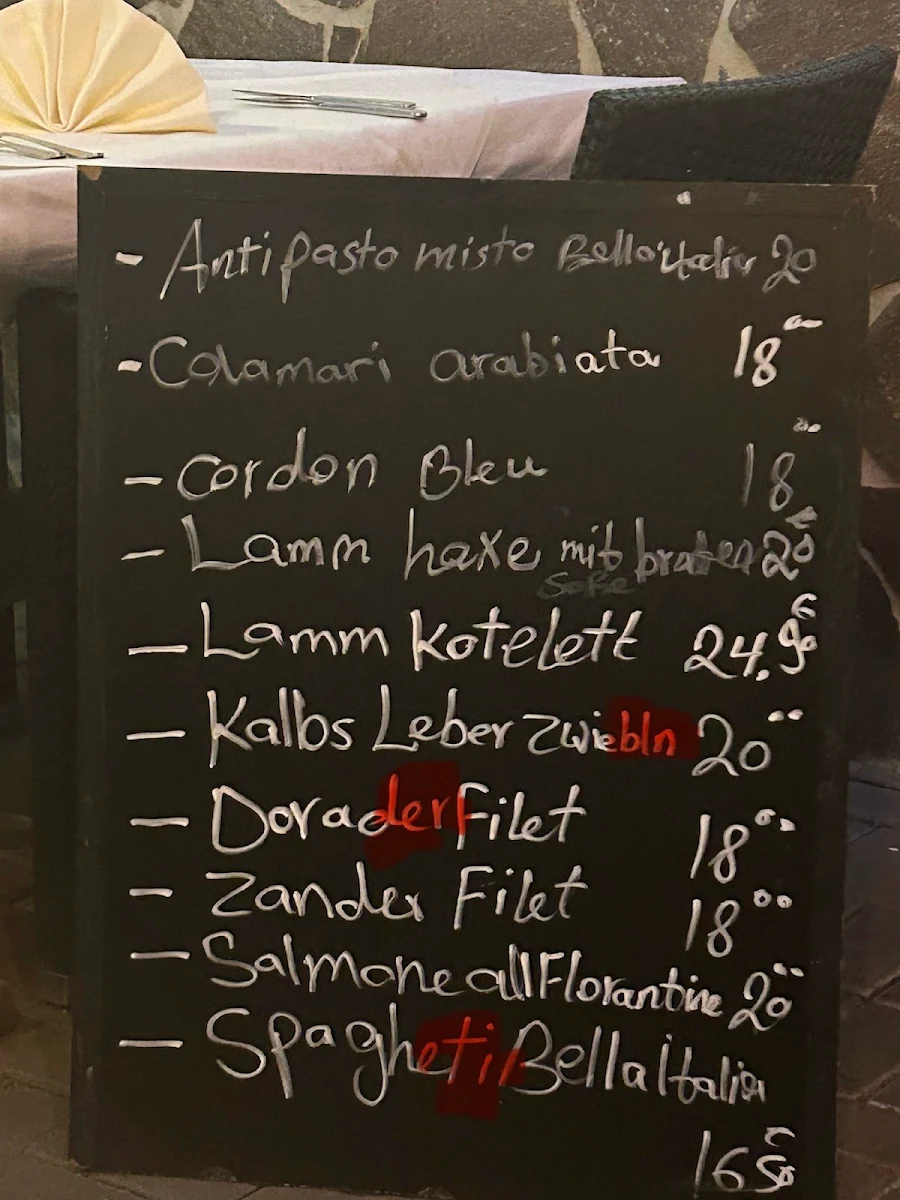 - Antipasto misto Bella Italia 20
- Calamari arabiata 18 00
- Cordon Bleu 18 00
- Lamm haxe mit braten 20 €
Soße
- Lamm Kotelett 24,90 €
- Kalbs Leber Zwiebln 20 00
- Dorader Filet 18 00
- Zander Filet 18 00
- Salmone all Florantine 20 00
- Spagheti Bella Italia
16 50 €